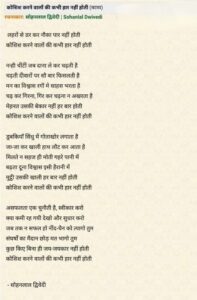 कोशिश करने वालों की कभी हार नहीं होती (काव्य)
रचनाकार: सोहनलाल द्विवेदी | Sohanlal Dwivedi
लहरों से डर कर नौका पार नहीं होती
कोशिश करने वालों की कभी हार नहीं होती
नन्ही चींटी जब दाना ले कर चढ़ती है
चढ़ती दीवारों पर सौ बार फिसलती है
मन का विश्वास रगों में साहस भरता है
चढ़ कर गिरना, गिर कर चढ़ना न अखरता है
मेहनत उसकी बेकार नहीं हर बार होती
कोशिश करने वालों की कभी हार नहीं होती
डुबकियाँ सिंधु में गोताखोर लगाता है
जा-जा कर खाली हाथ लौट कर आता है
मिलते न सहज ही मोती गहरे पानी में
बढ़ता दूना विश्वास इसी हैरानी में
मुट्ठी उसकी खाली हर बार नहीं होती
कोशिश करने वालों की कभी हार नहीं होती
असफलता एक चुनौती है, स्वीकार करो
क्या कमी रह गयी देखो और सुधार करो
जब तक न सफल हो नींद-चैन को त्यागो तुम
संघर्षों का मैदान छोड़ मत भागो तुम
कुछ किए बिना ही जय-जयकार नहीं होती
कोशिश करने वालों की कभी हार नहीं होती
- सोहनलाल द्विवेदी